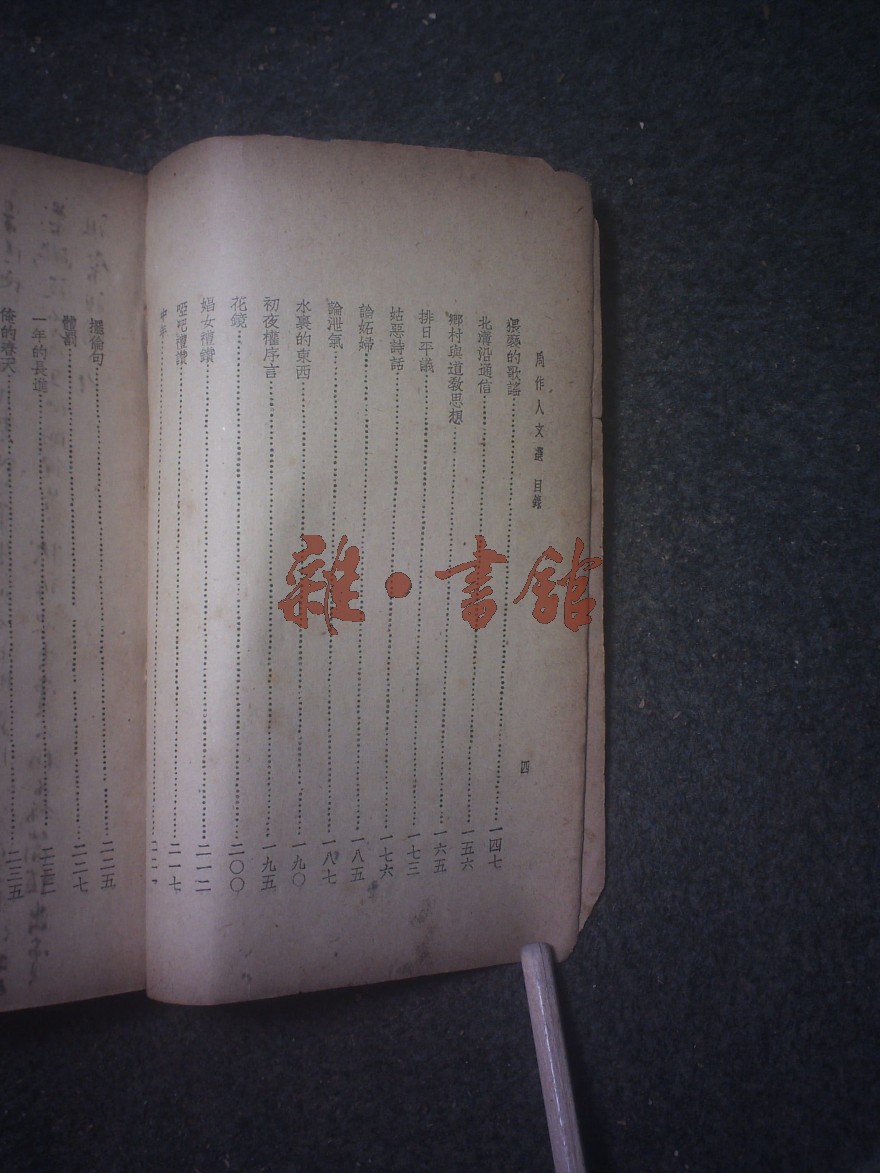 周作人文選 目錄
四
猥褻的歌謠 一四七
北溝沿通信 一五六
鄉村與道教思想 一六五
排日平議 一七三
姑惡詩話 一七六
論妬婦 一八五
論泄氣 一八七
水裏的東西 一九〇
初夜權序言 一九五
花鏡 二〇〇
娼女禮讚 二一二
啞吧禮讚 二一七
中年
擱倫句 二二五
體罰 二二七
一年的長進
俺的春天 二三五
雜·書館